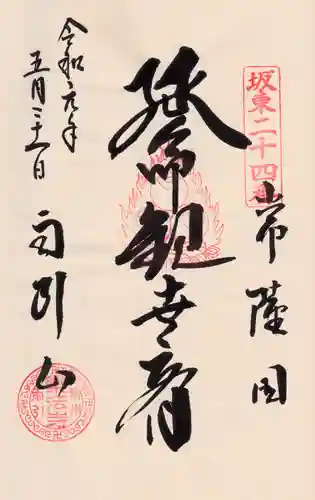 坂東二十四番
常陸国
延命観世音
雨引山
令和元年
五月三十一日